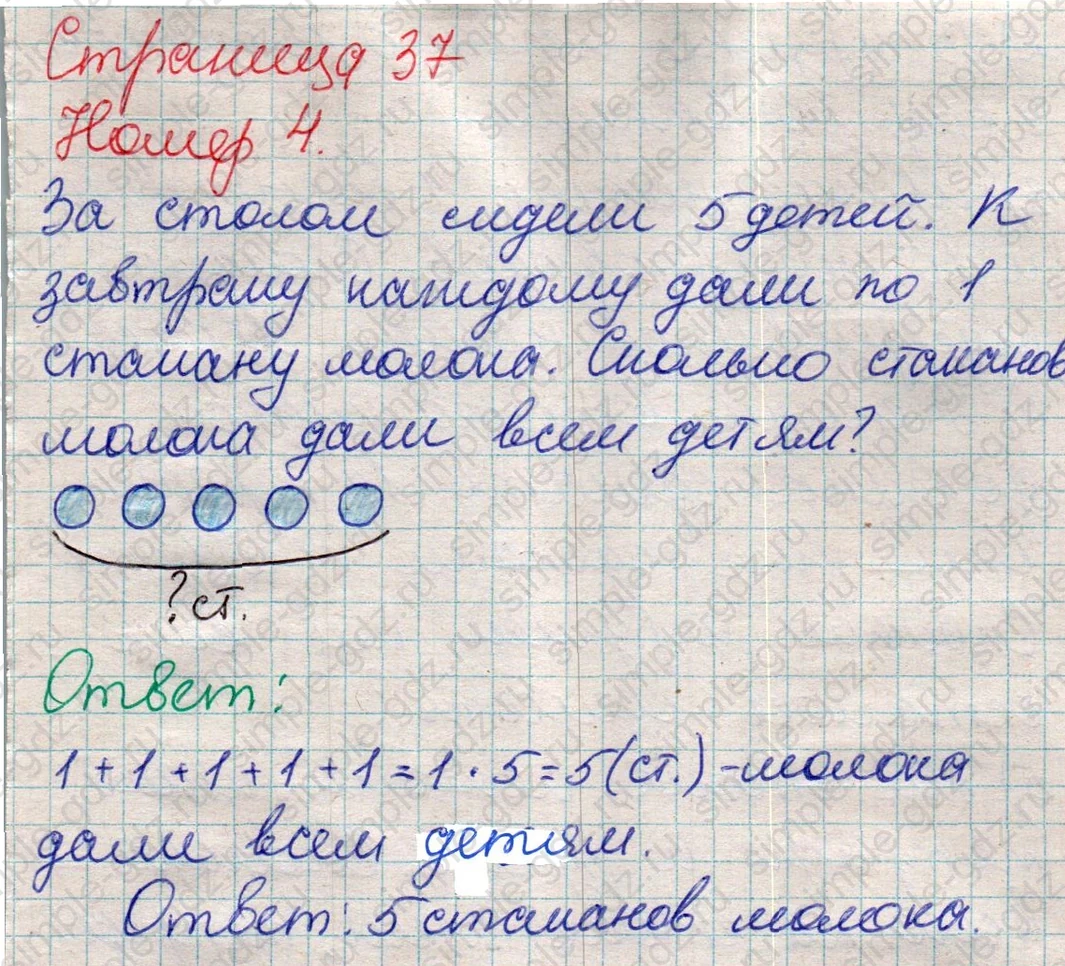 Страница 37
Номер 4.
За столом сидели 5 детей. К
завтраку каждому дали по 1
стакану молока. Сколько стаканов
молока дали всем детям?
? ст.
Ответ:
1 + 1 + 1 + 1 + 1 = 1 · 5 = 5 (ст.) - молока
дали всем детям.
Ответ: 5 стаканов молока.
simple-gdz.ru